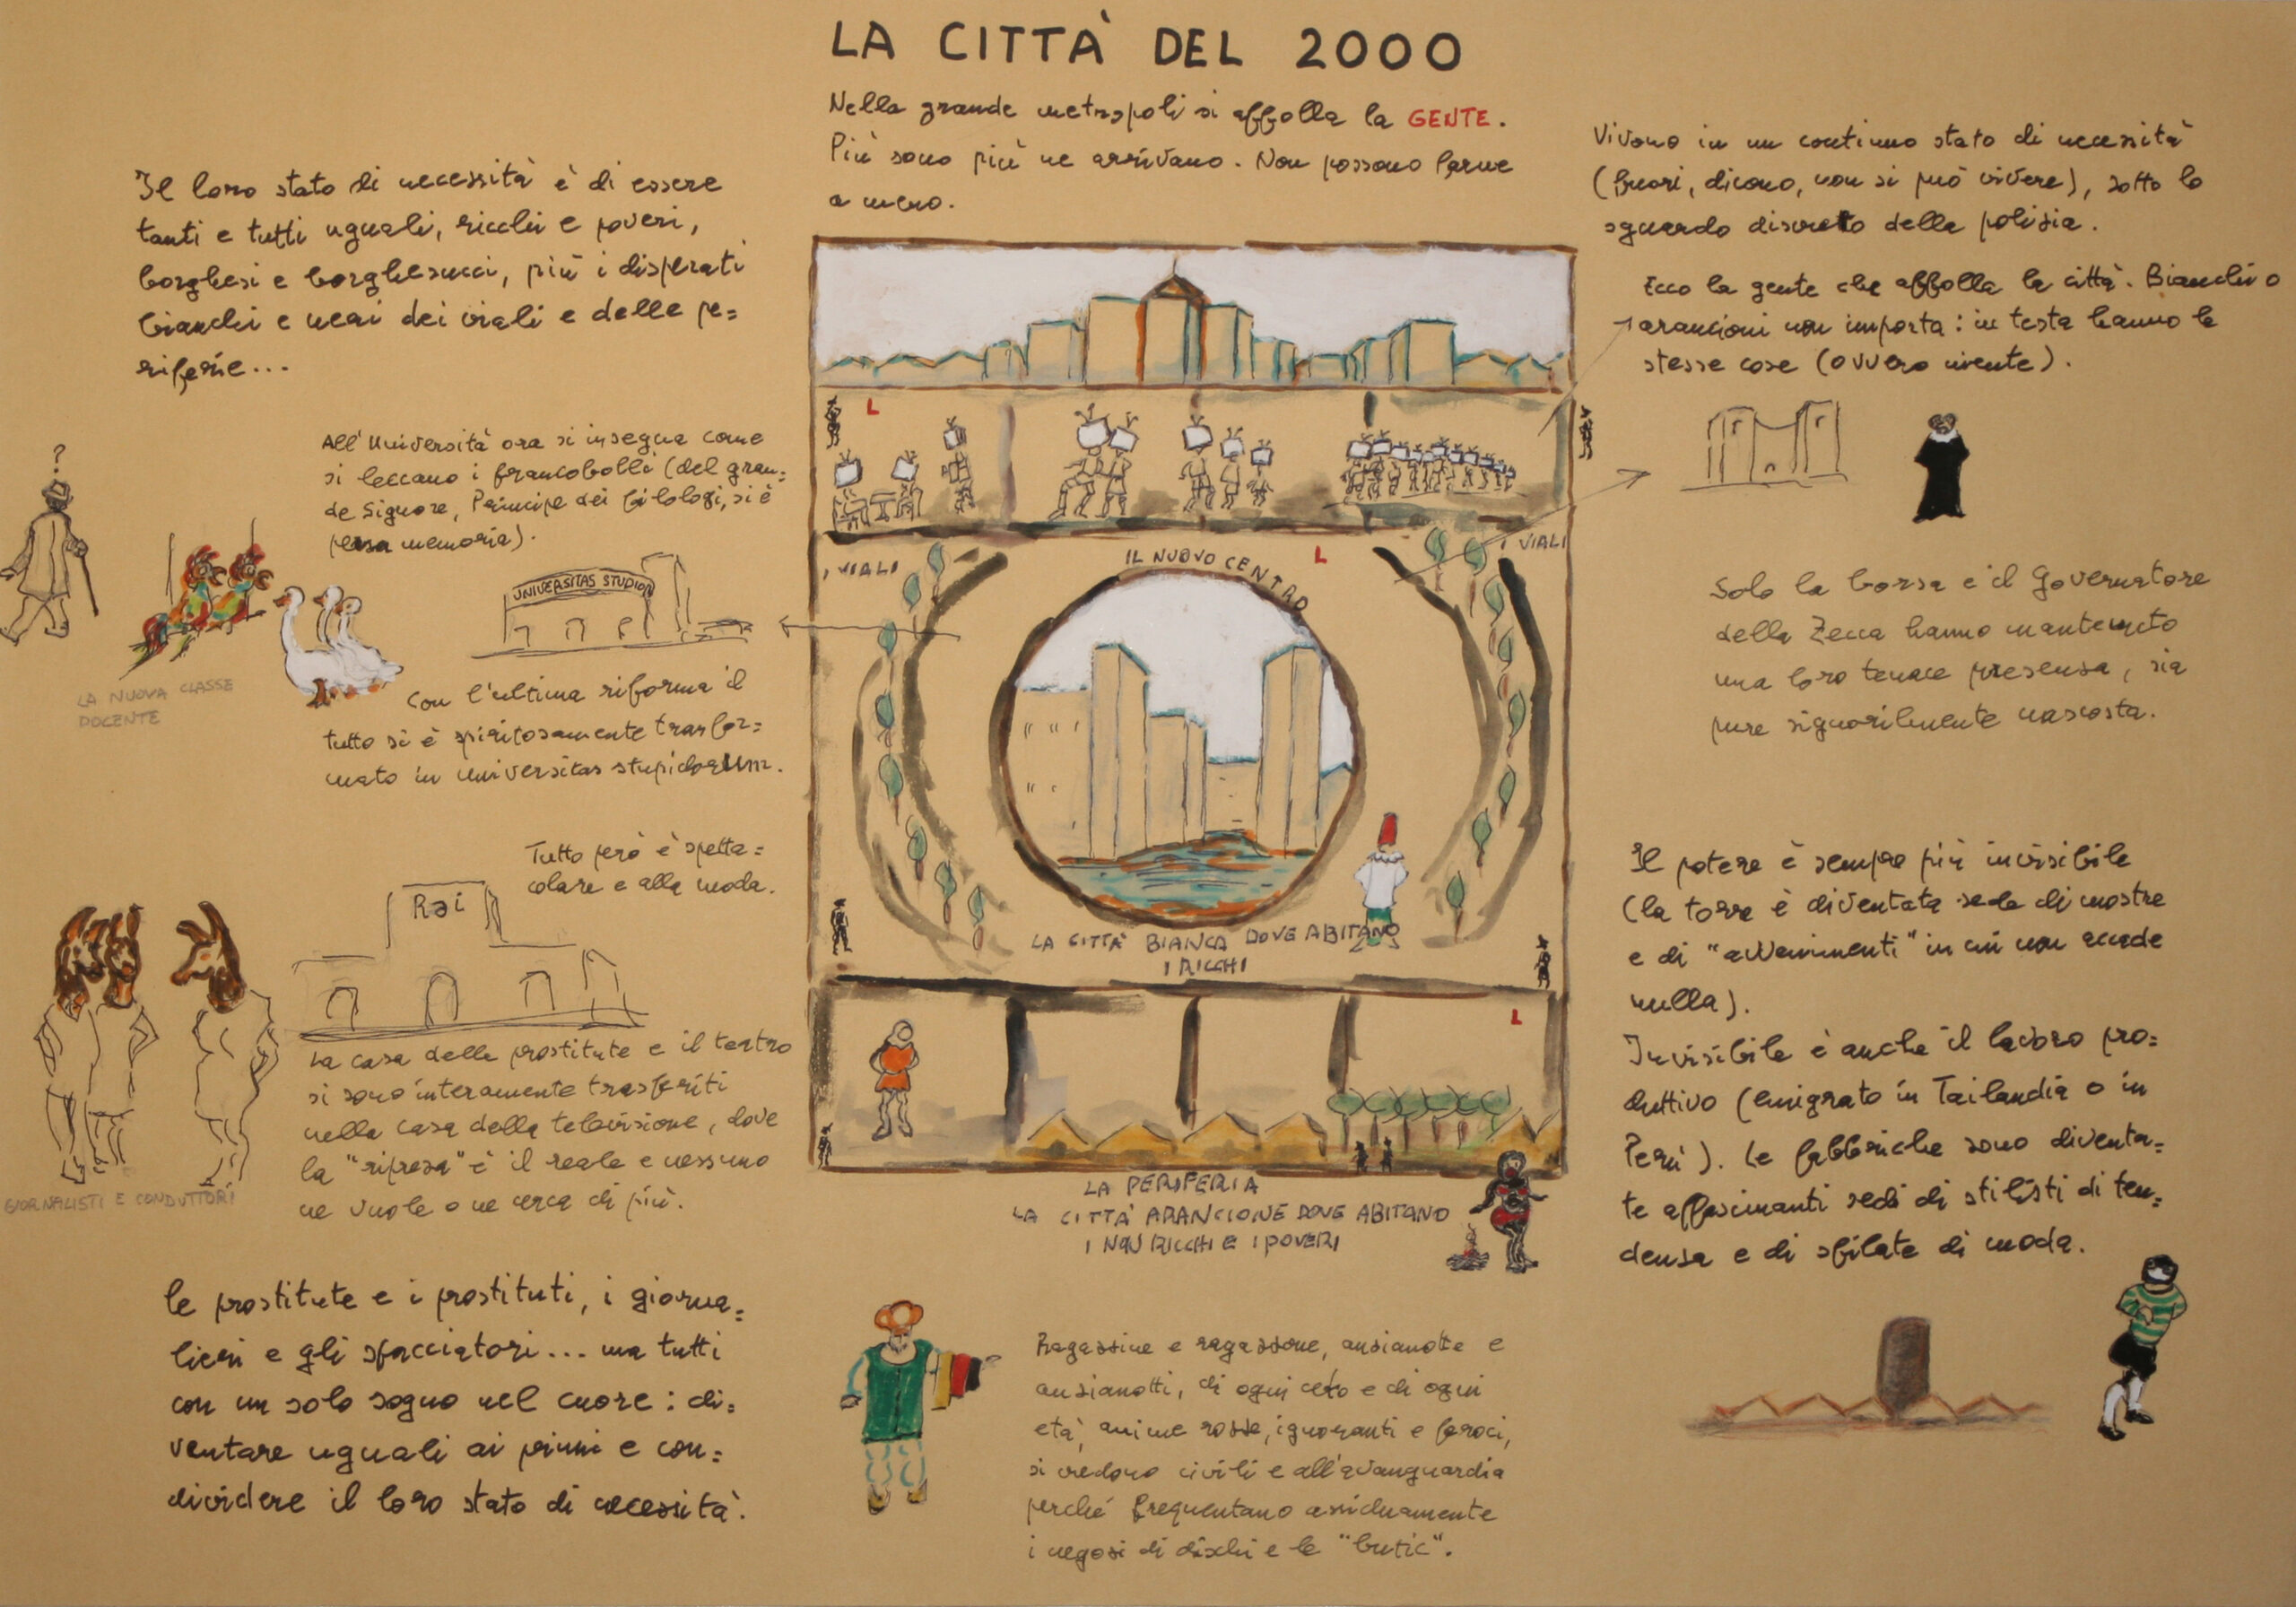 LA CITTÀ DEL 2000
Nella grande metropoli si affolla la GENTE.
Più sono più ne arrivano. Non possono farne
a meno.
Il loro stato di necessità è di essere
tanti e tutti uguali, ricchi e poveri,
borghesi e borghesucci, più i disperati
bianchi e neri dei viali e delle pe=
riferie...
Vivono in un continuo stato di necessità
(fuori, dicono, non si può vivere), sotto lo
sguardo discreto della polisia.
Ecco la gente che affolla la città. Bianchi o
arancioni non importa: in testa hanno le
stesse cose (ovvero niente).
?
All'Università ora si insegna come
si leccano i francobolli (del gran=
de Signore, Principe dei filologi, si è
persa memoria).
UNIVERSITAS STUDIOR
LA NUOVA CLASSE
DOCENTE
Con l'ultima riforma il
tutto si è spiritosamente trasfor=
mato in universitas stupidorum.
Tutto però è spetta=
colare e alla moda.
Rai
La casa delle prostitute e il teatro
si sono interamente trasferiti
nella casa della televisione, dove
la "ripresa" è il reale e nessuno
ne vuole o ne cerca di più.
GIORNALISTI E CONDUTTORI
le prostitute e i prostituti, i giorna=
lieri e gli sfacciatori... ma tutti
con un solo sogno nel cuore: di=
ventare uguali ai primi e con=
dividere il loro stato di necessità.
L
I VIALI
IL NUOVO CENTRO
L
I VIALI
LA CITTÀ BIANCA DOVE ABITANO
I RICCHI
L
LA PERIFERIA
LA CITTÀ ARANCIONE DOVE ABITANO
I NON RICCHI E I POVERI
Ragassine e ragassone, ansianotte e
ansianotti, di ogni ceto e di ogni
età, anime rosse, ignoranti e feroci,
si credono civili e all'avanguardia
perché frequentano assiduamente
i negosi di dischi e le "butic".
Solo la borsa e il Governatore
della Zecca hanno mantenuto
una loro tenace presensa, sia
pure signorilmente nascosta.
Il potere è sempre più invisibile
(la torre è diventata sede di mostre
e di "avvenimenti" in cui non accade
nulla).
Invisibile è anche il lavoro pro=
duttivo (emigrato in Tailandia o in
Perù). Le fabbriche sono diventa=
te affascinanti sedi di stilisti di ten=
densa e di sfilate di moda.